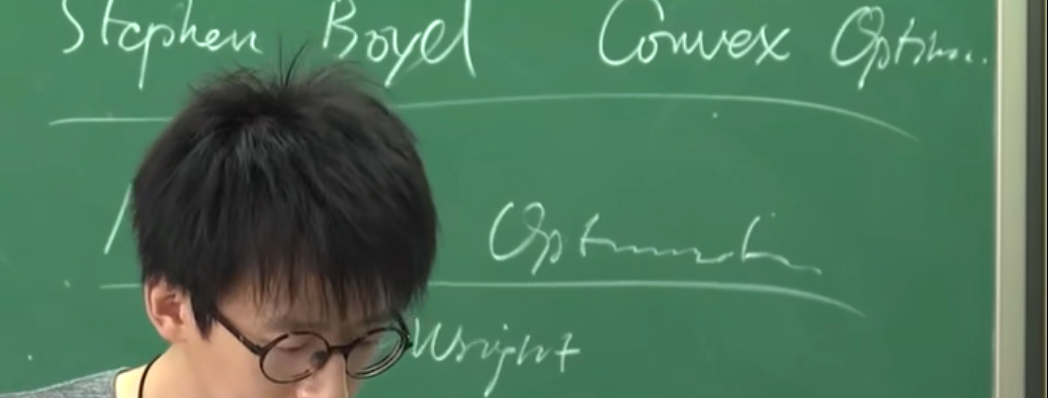 Stephen Boyd Convex Optim..
Optimization
Wright